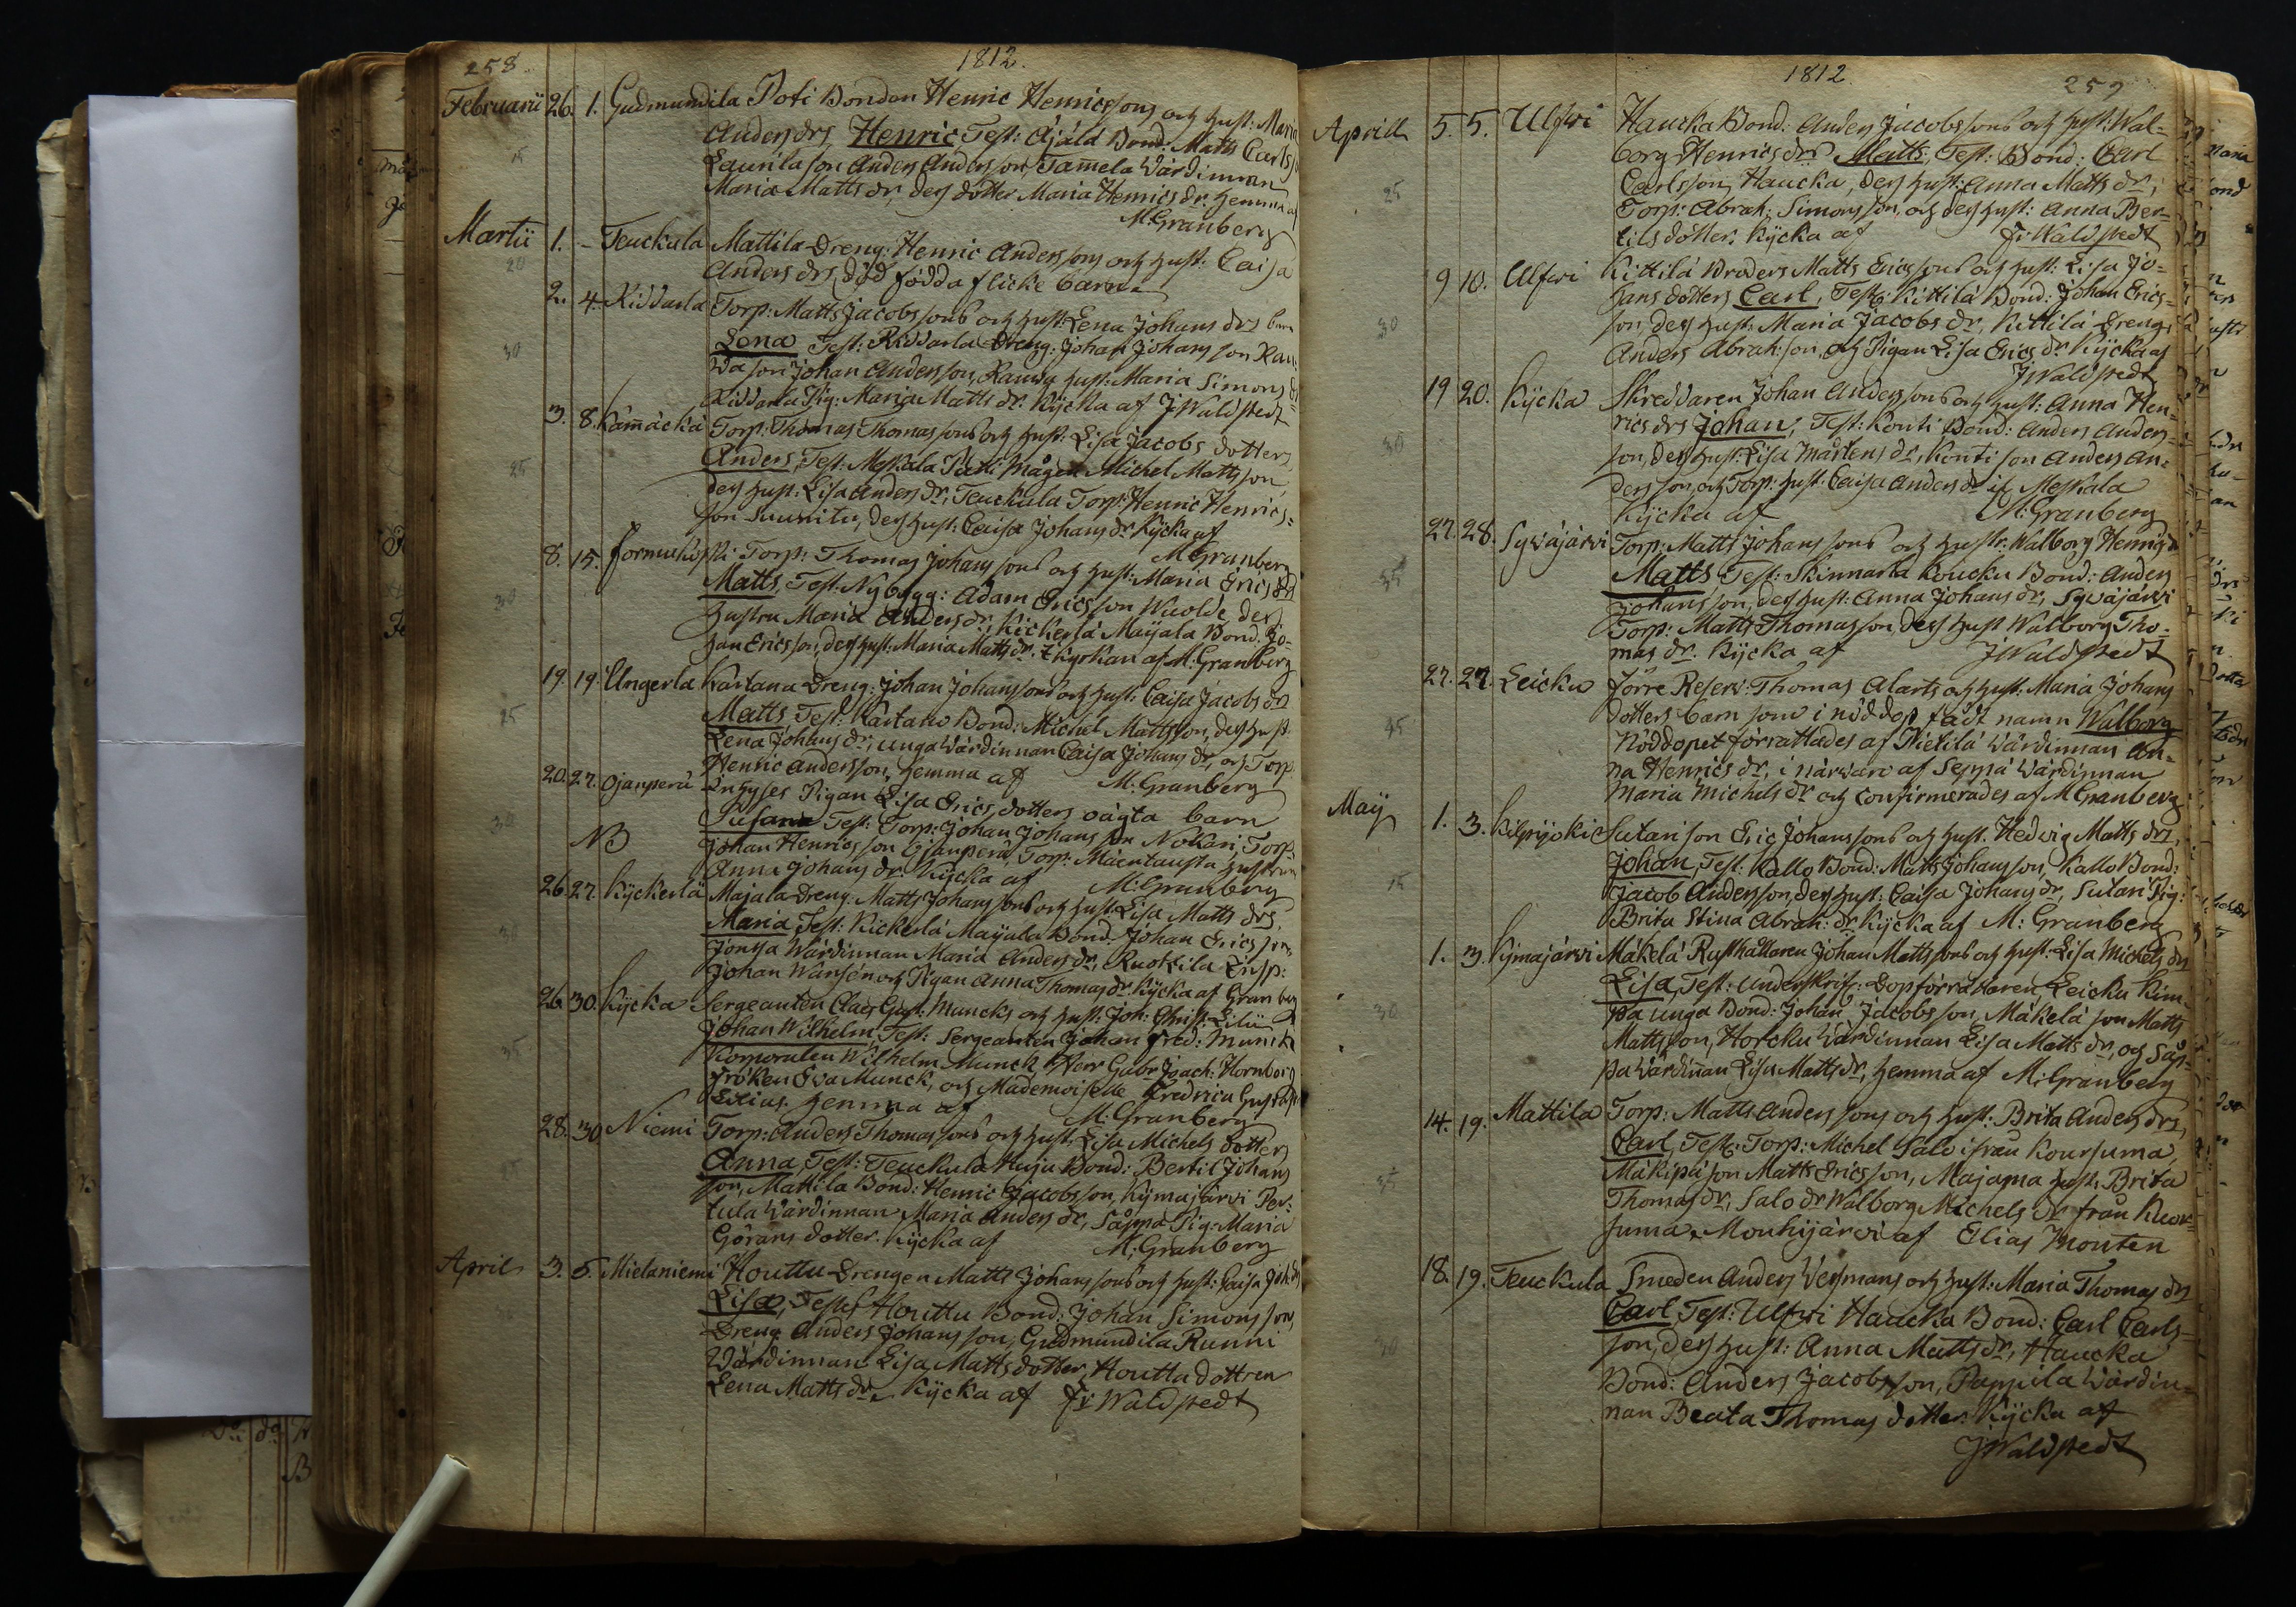 258. 1812.
Februarii 26. 1. Gudmundila Poti Bonden Henric Henricssons och hust: Maria
15 Anders drs Henric, Test: Äjälä Bond: Matts Carlss
Laurila son Anders Andersson, Tammela Värdinnan
Maria Matts dr, dess dotter Maria Henrics dr. hemma af
M: Granberg
Martii 1. – Teuckula Mattila Dreng: Henric Anderssons och hust: Caisa
20 Anders drs död födda flicke barn.
2. 4. Kiddarla Torp: Matts Jacobssons och hust: Lena Johans drs barn
30 Lena Test: Kiddarla Dreng: Johan Johansson Rau-
da son Johan Andersson, hust: Maria Simons dr
Kiddarla Pig: Maria Matts dr. Kÿcka af J Waldstedt
3. 8. Kämäckä Torp: Thomas Thomassons och hust: Lisa Jacobs dotters
25 Anders, Test: Meskala Pätti mågen Michel Mattsson,
dess hust: Lisa Anders dr, Teuckula Torp: Henric Henrics-
son Suunitu, dess hust: Caisa Johans dr Kÿcka af
M Granberg
8. 15. Formukoski Torp: Thomas Johanssons och hust: Maria Erics drs
30 Matts, Test: Nybygg: Adam Ericsson Wuolde, dess
hustru Maria Anders dr, Kickerlä Maÿala Bond: Jo-
han Ericsson, dess hust: Maria Matts dr. I kyrkan af M: Granberg
19. 19. Ungerla Kartana Dreng: Johan Johanssons och hust: Caisa Jacobs drs
25 Matts Test: Kartano Bond: Michel Mattsson, dess hust:
Lena Johans dr, unga Wärdinnan Caisa Johans dr, och Torp:
Henric Andersson, hemma af M: Granberg
20. 27. Ojanperä Inhyses Pigan Lisa Erics dotters oägta barn
30 Susanna Test: Torp: Johan Johansson Nokari, Torp:
NB Johan Henricsson Ojanperä, Torp: Mäentausta hustrun
Anna Johans dr Kÿcka af M: Granberg
26. 27. Kÿckerlä Majala Dreng: Matts Johanssons och hust: Lisa Matts drs
30 Maria Test: Kickerlä Maÿala Bond: Johan Ericsson
Jontsa Wärdinnan Maria Anders dr, Ruottila Insp:
Johan Wänsén och Pigan Anna Thomas dr Kÿcka af Granberg
26. 30. Kÿcka Sergeanten Claes Gust: Muncks och hust: Joh: Christ: Lilii
35 Johan Wilhelm, Test: Sergeanten Johan Fred: Munck
Komoralen Wilhelm Munck, Herr Gabr: Joach: Hornborg
Fröken Eva Munck, och Mademoiselle Fredrica Gustafva
Lilius. hemma af M: Granberg
28. 30. Niemi Torp: Anders Thomassons och hust: Lisa Michels dotter
Anna, Test: Teuckula Huju Bond: Bertil Johans
son, Mattila Bond: Henric Jacobsson, Kÿmajärvi Per-
tula Wärdinnan Maria Anders dr, Säppä Pig: Maria
Görans dotter. Kÿcka af M: Granberg
April 3. 5. Mielaniemi Houttu Drengen Matts Johanssons och hust: Caisa Joh: drs
Lisa, Test: Houttu Bond: Johan Simonsson,
Dreng Anders Johansson, Gudmundila Runni
Wärdinnan Lisa Mattsdotter, Houttu dottren
Lena Matts dr. Kÿcka af Fr Waldstedt
1812. 259
Aprill 5. 5. Ulfvi Haucka Bond: Anders Jacobssons och hust: Wal-
borg Henrics drs Matts, Test: Bond: Carl
25 Carlsson, Haucka, dess hust: Anna Matts dr,
Torp: Abrah: Simonsson, och dess hust: Anna Ber-
tils dotter. Kÿcka af Fr: Waldstedt
9 10. Ulfvi Kittilä Broders Matts Ericssons och hust: Lisa Jo-
hans dotters Carl, Test: Kittilä Bond: Johan Erics-
30 son, dess hust: Maria Jacobs dr, Kittilä Dreng:
Anders Abrahsson, och Pigan Lisa Erics dr Kÿcka af
J Waldstedt
19 20. Kÿcka Skreddaren Johan Anderssons och hust: Anna Hen-
rics drs Johan, Test: Konti Bond: Anders Anders-
30 son, dess hust: Lisa Mårtens dr, Konti son Anders An-
dersson, och Torp: hust: Caisa Anders dr if Meskala
Kÿcka af M: Granberg
27. 28. Sywäjärvi Torp: Matts Johanssons och hustr: Walborg Henrics d
35 Matts Test: Skinnarla Koucku Bond: Anders
Johansson, dess hust: Anna Johans dr, Sywäjärvi
Torp: Matts Thomasson, dess hust Walborg Tho-
mas dr. Kÿcka af J Waldstedt
27. 27. Leicku Förre Reserv: Thomas Alarts och hust: Maria Johans
dotters barn som i nöddop fådt namn Walborg
45 Nöddopet förrättades af Pietilä Wärdinnan An-
na Henrics dr, i närwaro af Seppä Wärdinnan
Maria Michels dr och confirmerades af M Granberg
Maÿ 1. 3. Kilpijoki Sutari son Eric Johanssons och hust: Hedvig Matts drs,
Johan, Test: Kallo Bond: Matts Johansson, Kallo Bond:
15 Jacob Andersson, dess hust: Caisa Johans dr, Sutari Pig:
Brita Stina Abrah: dr Kÿcka af M: Granberg
1. 3. Kÿmajärvi Mäkelä Rusthållaren Johan Mattssons och hust: Lisa Michels drs
Lisa, Test: Underskrif: Dopförrättaren, Leicku Kim-
30 pa unga Bond: Johan Jacobsson, Mäkelä son Matts
Mattsson, Horcku Wärdinnan Lisa Matts dr, och Säp-
pä Wärdinnan Lisa Matts dr, hemma af M: Granberg
14. 19. Mattila Torp: Matts Anderssons och hust: Brita Anders drs,
Carl, Test: Torp: Michel Salo ifrån Kourjuma,
35 Mäkipä son Matts Ericsson, Majamaa hust: Brita
Thomas dr, Salo dr Walborg Michels dr från Kuor-
juma, Mouhijärvi af Elias Monten
18. 19. Teuckula Smeden Anders Wessmans och hust: Maria Thomas drs
Carl, Test: Ulfvi Haucka Bond: Carl Carls-
30 son, dess hust: Anna Matts dr, Haucka
Bond: Anders Jacobsson, Pappila Wärdin-
nan Beata Thomas dotter: Kÿcka af
J Waldstedt